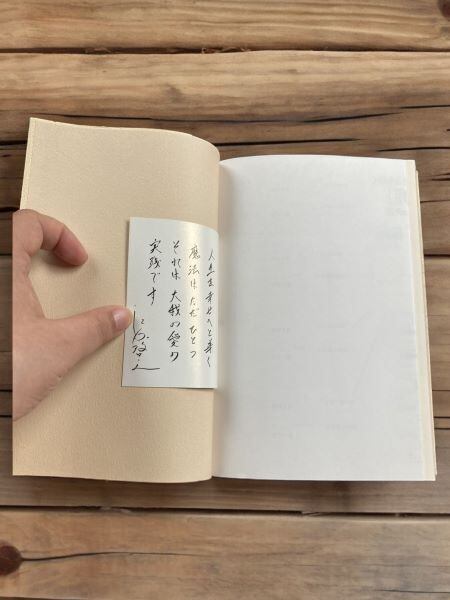 人生を幸せへと導く
魔法はただひとつ
それは 大我の愛の
実践です
江原啓之